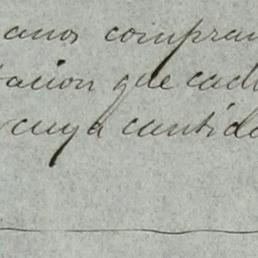 anos compran
tacion que cad
cuya cantid